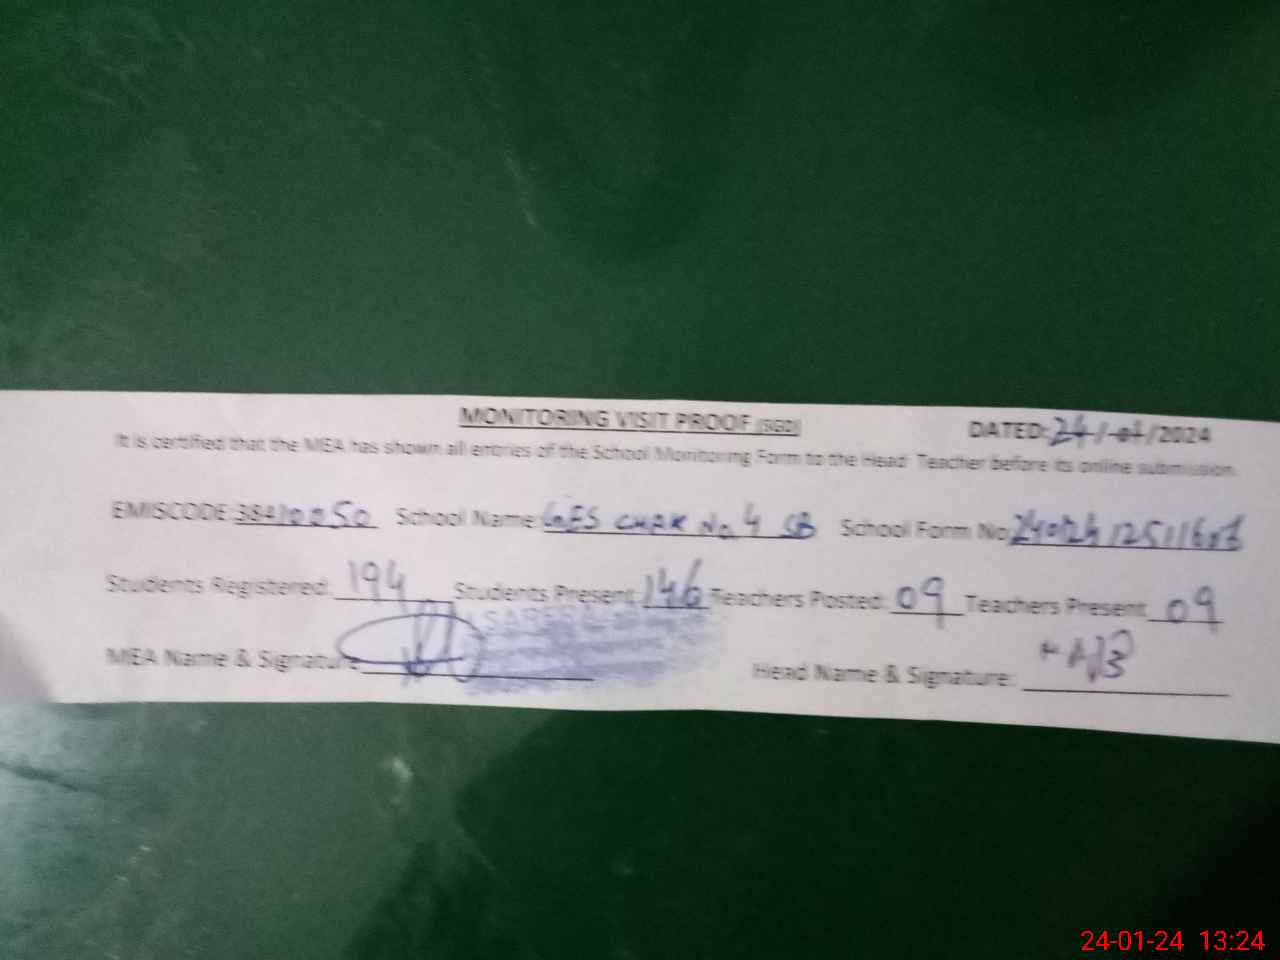 MONITORING VISIT PROOF (SGD) DATED: 24/01/2024
It is certified that the MEA has shown all entries of the School Monitoring Form to the Head Teacher before its online submission.
EMISCODE 38410050 School Name GES CHAK No. 4 SB School Form No
Students Registered: 194 Students Present: 146 Teachers Posted: 09 Teachers Present 09
MEA Name & Signature
Head Name & Signature:
24-01-24 13:24